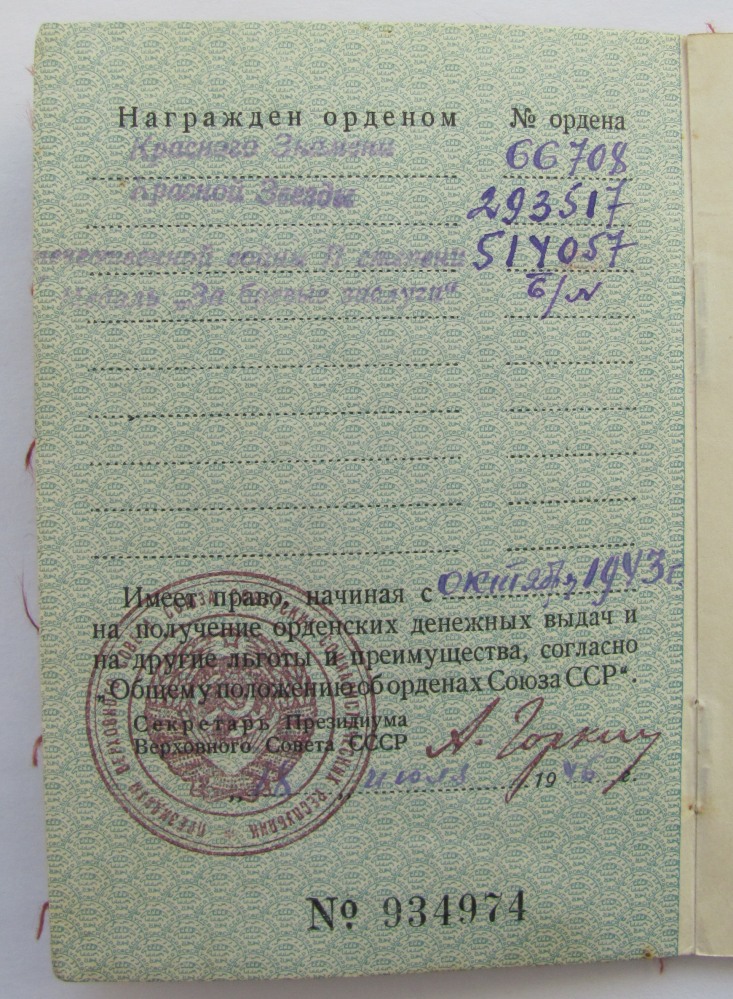 Награжден орденом № ордена
Красного Знамени 66708
Красной Звезды 293517
течественной войны II степени 514057
Медаль „За боевые заслуги“ б/н
Имеет право, начиная с октября 1943 г.
на получение орденских денежных выдач и
на другие льготы и преимущества, согласно
„Общему положению об орденах Союза ССР“.
Секретарь Президиума
Верховного Совета СССР А. Горкин
„18“ июля 1946 г.
№ 934974